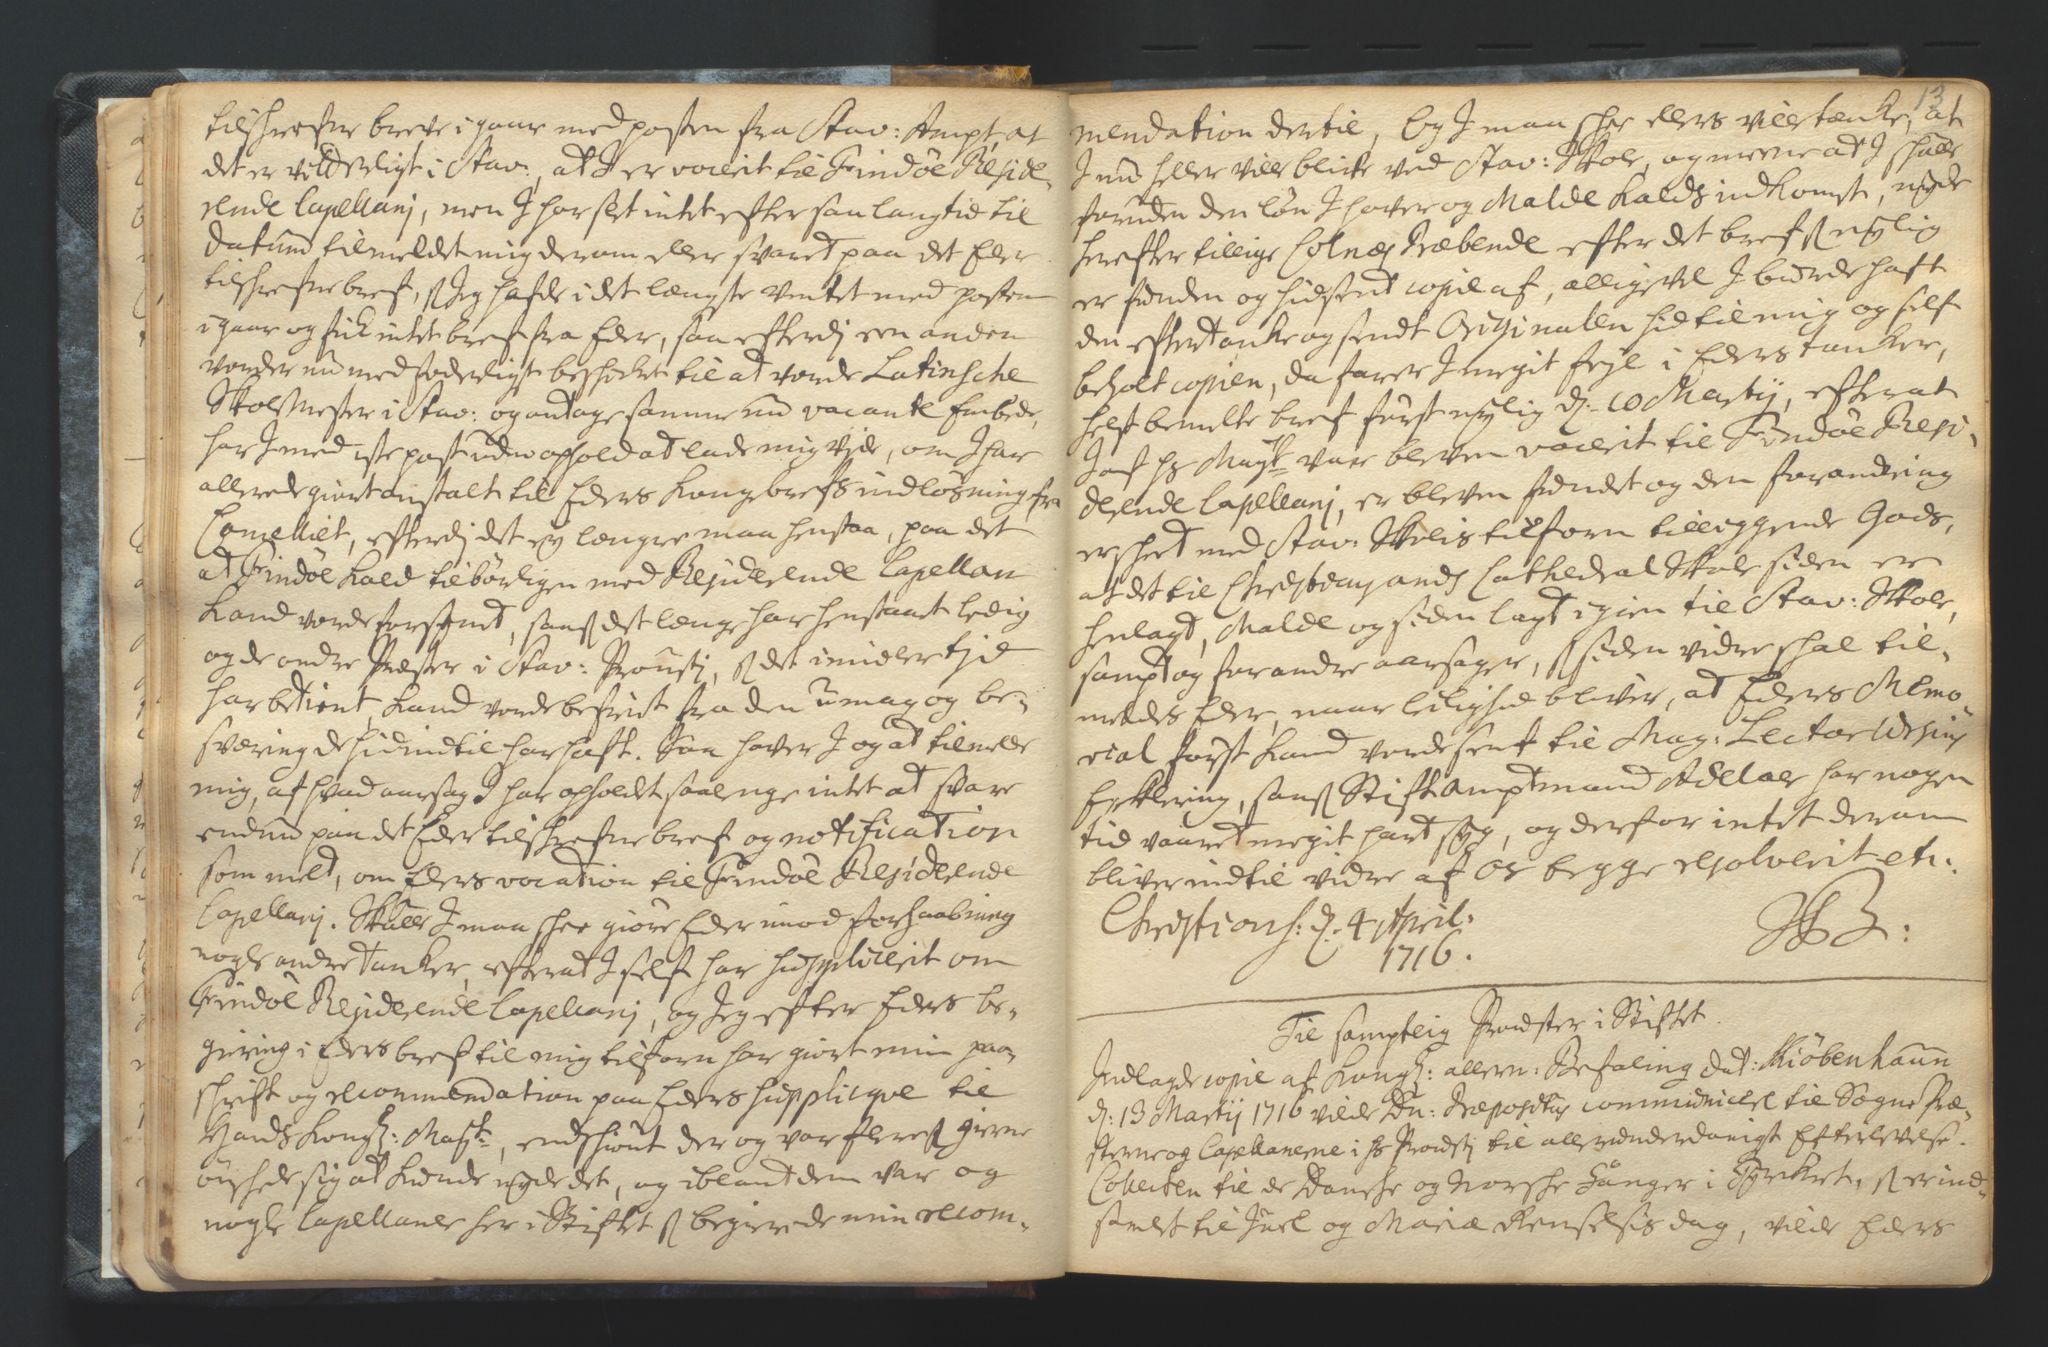 tilskrefne breve i gaar med posten fra Stav: Ampt, at
det er vitterligt i Stav:, at I er voceret til Findöe Resid-
erende Capellanj, men I har slet intet efter saa lang tid til
datum tilmeldet mig derom eller svaret paa det Eder
tilskrefne bref, s Jeg hafde i det længste ventet med posten
i gaar og fik intet bref fra Eder, saa efterdj een anden
vorder nu med foderligste beskicket til at vorde Latinsche
Skolemester i Stav: og antage samme nu vacante Embede,
har I med iste post uden ophold at lade mig vide, om I har
allerede giort anstalt til Eders Kongebrefs indlösning fra
Cancelliet, efterdj det ey længre maa henstaa, paa det
at Findöe Kald tilbörligen med Residerende Capellan
Kand vorde forsynet, som det længe har henstaaet ledig
og de andre Præster i Stav:Proustj, s det imidlertjd
har betient, Kand vorde befriet fra den umag og be-
sværing de hid indtil har haft. Saa haver I og at tilmelde
mig, af hvad aarsag I har opholdet saalenge intet at svare
endnu paa det Eder tilskrefne bref og notification
som meldt, om Eders vocation til Findöe Residerende
Capellanj. Skulle I maa skee giöre Eder imod forhaabning
nogle andre tanker, efterat I self har suppliceret om
Findöe Residerende Capellanj, og Jeg efter Eders be-
giering i Eders bref til mig tilforn har giort min paa-
schrift og recommendation paa Eders supplique til
Hands Kongl: Mayt, endskiönt der og var fleere s gierne
önskede sig at kunde nyde det, og iblant dem var og
nogle Capellaner her i Stiftet s begierede min recom-
13
mendation dertil, Og I maa skee ellers ville tænke, at
I nu heller ville blive ved Stav: Skole, og meene at I skulle
foruden den lön I haver og Malde Kalds indkomst, nyde
herefter tillige Colnæs Præbende efter det bref s nylig
er funden og hidsendt copie af, alligevel I burde haft
den eftertanke og sendt Originalen hid til mig og self
beholt copien, da farer I megit fejl i Eders tanker,
helst bemelte bref först nylig d: 10 Martij, efterat
I af hs Mayt var bleven voceret til Findöe Resi-
derende Capellanj, er bleven fundet og den forandring
er skeet med Stav: Skolis tilforn tilleggende Gods,
at det til Christiansands Cathedral Skole siden er
henlagt, Malde og siden lagt igien til Stav: Skole,
sampt og for andre aarsager, s siden vidre skal til-
meldes Eder, naar leilighed bliver, at Eders Memo-
rial först Kand vorde sent til Mag: Lector
Erklering, som Stiftamptmand Adelaer har nogen
tid vaaret megit hart syg, og derfor intet derom
bliver indtil vidre af os begge resolveret etc:
Christians: d: 4 April:
1716.
Til samptlig Prouster i Stiftet.
Indlagde copie af Kongl: allern: Befaling dat: Kiöbenhaun
d: 13 Martij 1716 vilde Dn: Præpositus communicere til Sognepræ-
sterne og Capellanerne i hs Proustj til allerunderdanigst Efterlevelse.
Collecten til de Danske og Norske Fanger i Tyrkiet, s er ind-
samlet til Juel og Mariæ Renselses dag, vilde Eders